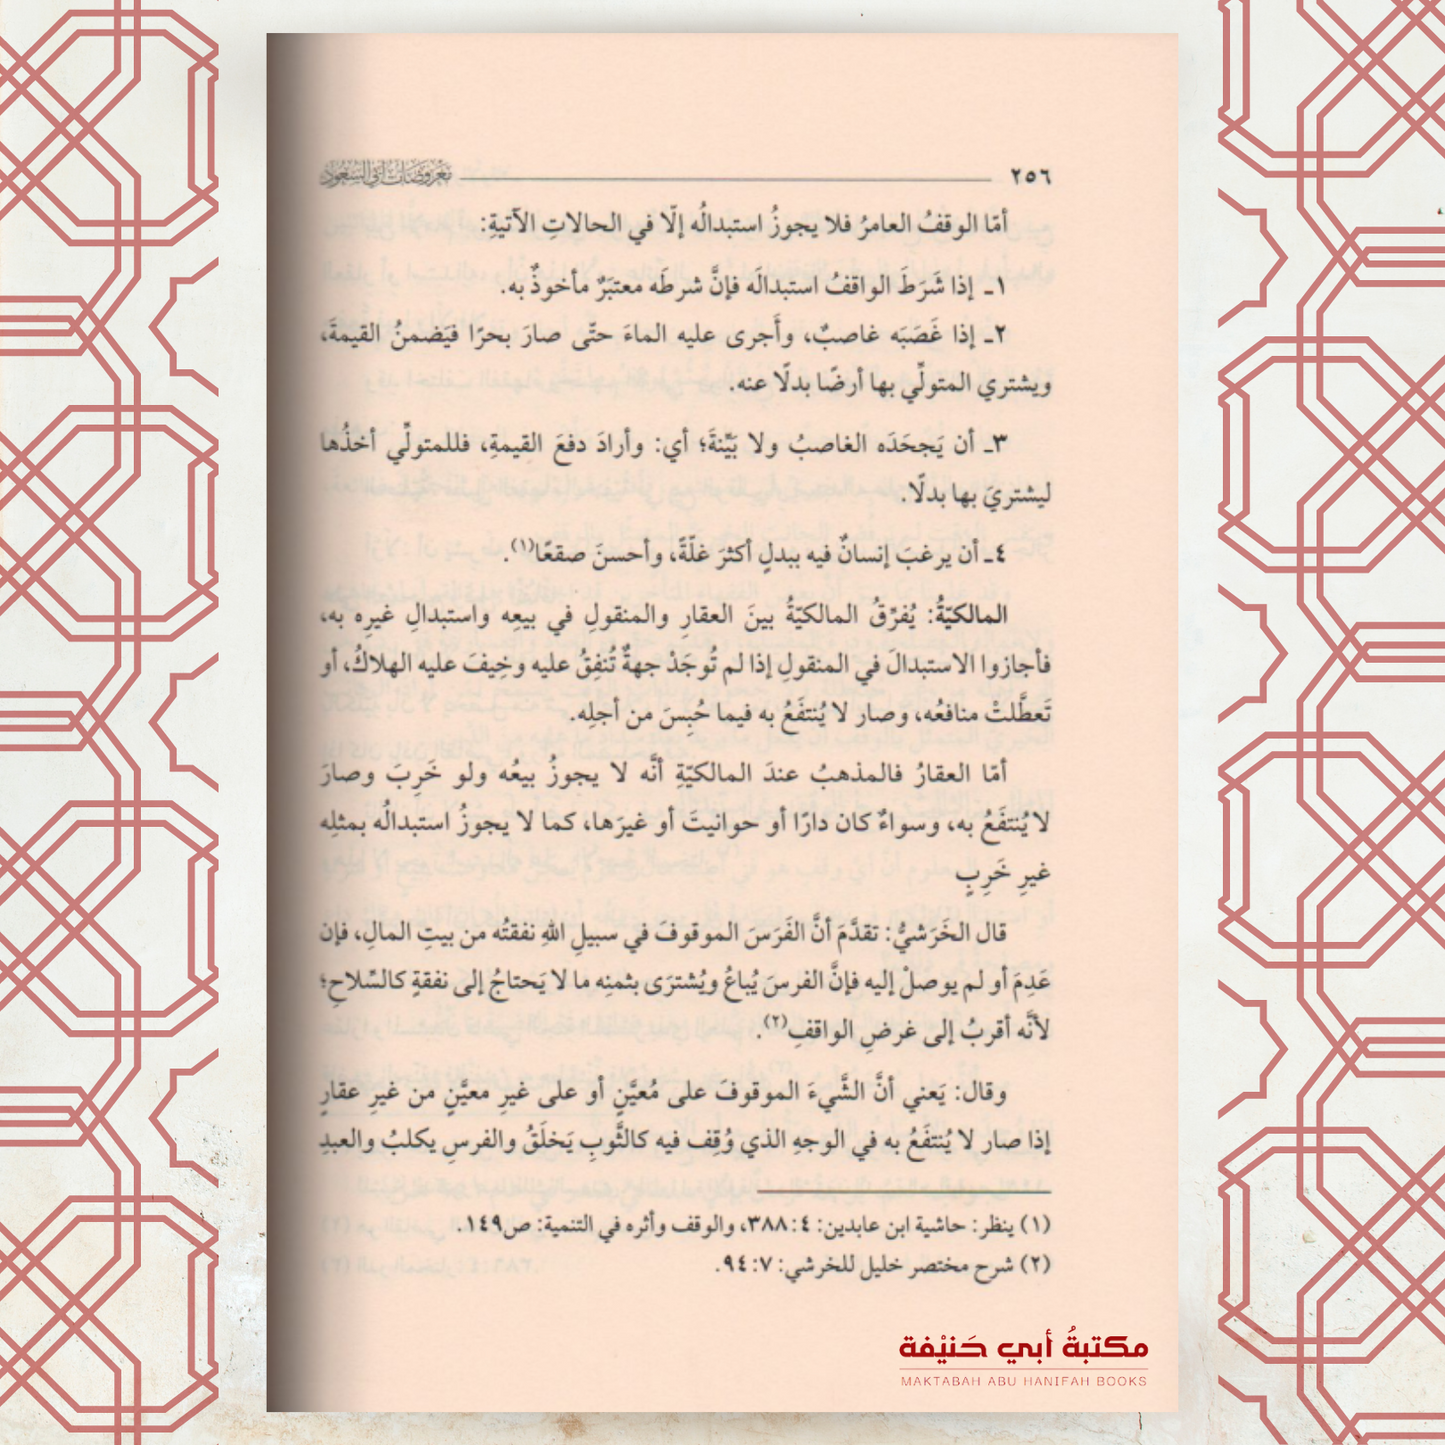 ٢٥٦ معروضات أبي السعود
أمّا الوقفُ العامرُ فلا يجوزُ استبدالُه إلّا في الحالاتِ الآتيةِ:
١ـ إذا شَرَطَ الواقفُ استبدالَه فإنَّ شرطَه معتبَرٌ مأخوذٌ به.
٢ـ إذا غَصَبَه غاصبٌ، وأَجرى عليه الماءَ حتّى صارَ بحرًا فيَضمنُ القيمةَ،
ويشتري المتولِّي بها أرضًا بدلًا عنه.
٣ـ أن يَجحَدَه الغاصبُ ولا بَيِّنةَ؛ أي: وأرادَ دفعَ القيمةِ، فللمتولِّي أخذُها
ليشتريَ بها بدلًا.
٤ـ أن يرغبَ إنسانٌ فيه ببدلٍ أكثرَ غلّةً، وأحسنَ صقعًا(١).
المالكيّةُ: يُفرِّقُ المالكيّةُ بينَ العقارِ والمنقولِ في بيعِه واستبدالِ غيرِه به،
فأجازوا الاستبدالَ في المنقولِ إذا لم تُوجَدْ جهةٌ تُنفِقُ عليه وخِيفَ عليه الهلاكُ، أو
تَعطَّلتْ منافعُه، وصار لا يُنتفَعُ به فيما حُبِسَ من أجلِه.
أمّا العقارُ فالمذهبُ عندَ المالكيّةِ أنَّه لا يجوزُ بيعُه ولو خَرِبَ وصارَ
لا يُنتفَعُ به، وسواءٌ كان دارًا أو حوانيتَ أو غيرَها، كما لا يجوزُ استبدالُه بمثلِه
غيرِ خَرِبٍ
قال الخَرَشيُّ: تقدَّمَ أنَّ الفَرَسَ الموقوفَ في سبيلِ اللهِ نفقتُه من بيتِ المالِ، فإن
عَدِمَ أو لم يوصلْ إليه فإنَّ الفرسَ يُباعُ ويُشترَى بثمنِه ما لا يَحتاجُ إلى نفقةٍ كالسِّلاحِ؛
لأنَّه أقربُ إلى غرضِ الواقفِ(٢).
وقال: يَعني أنَّ الشَّيءَ الموقوفَ على مُعيَّنٍ أو على غيرِ معيَّنٍ من غيرِ عقارٍ
إذا صار لا يُنتفَعُ به في الوجهِ الذي وُقِف فيه كالثَّوبِ يَخلَقُ والفرسِ يكلبُ والعبدِ
(١) ينظر: حاشية ابن عابدين: ٤: ٣٨٨، والوقف وأثره في التنمية: ص١٤٩.
(٢) شرح مختصر خليل للخرشي: ٧: ٩٤.
مكتبةُ أبي حَنيْفة
MAKTABAH ABU HANIFAH BOOKS